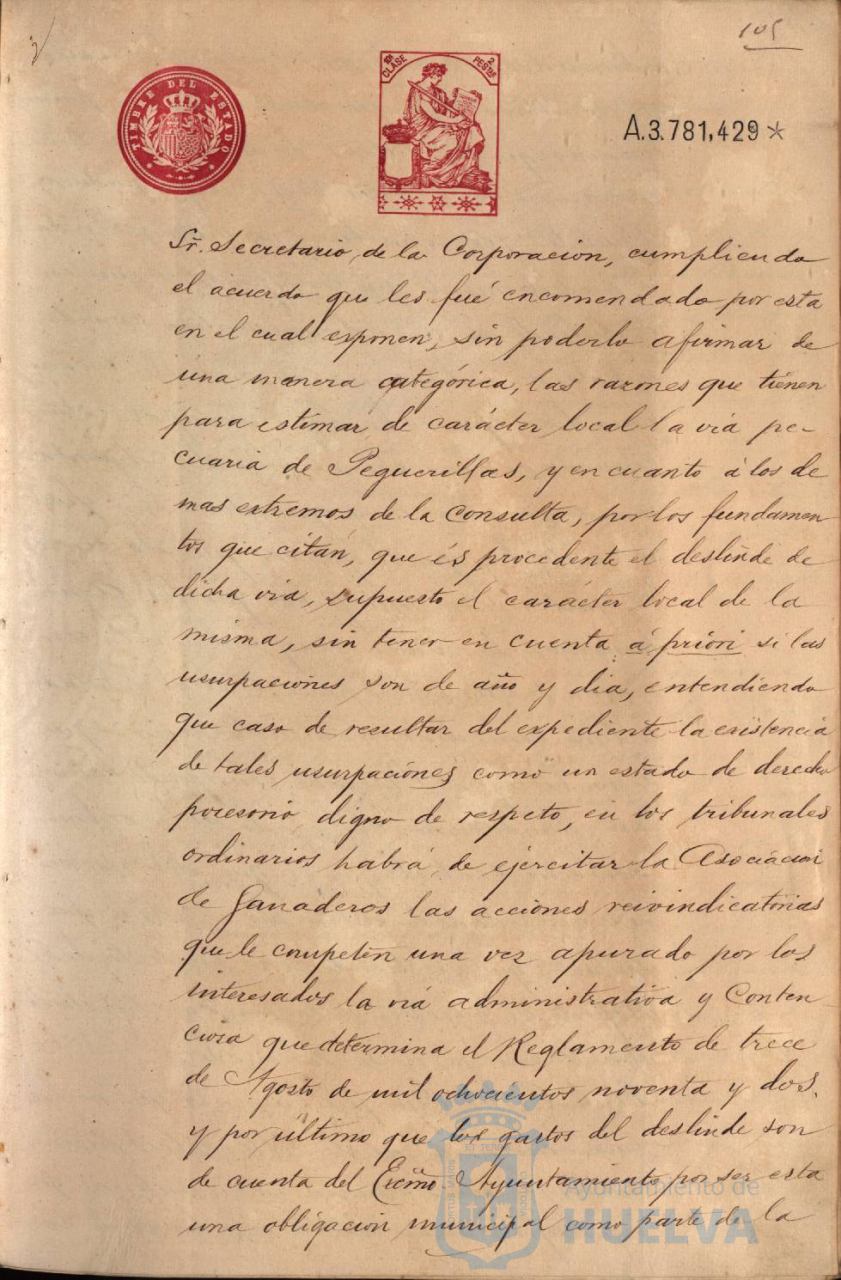 105
TIMBRE DEL ESTADO
CLASE
2 PESTAS
A.3.781,429*
Sr. Secretario de la Corporación, cumpliendo
el acuerdo que les fué encomendado por esta
en el cual exponen, sin poderlo afirmar de
una manera categórica, las razones que tienen
para estimar de carácter local la via pe-
cuaria de Peguerillas, y en cuanto á los de
mas extremos de la consulta, por los fundamen
tos que citan, que és procedente el deslinde de
dicha via, supuesto el carácter local de la
misma, sin tener en cuenta á priori si las
usurpaciones son de año y dia, entendiendo
que caso de resultar del expediente la existencia
de tales usurpaciones como un estado de derecho
posesorio digno de respeto, en los tribunales
ordinarios habrá de ejercitar la Asociación
de Ganaderos las acciones reivindicatorias
que le competen una vez apurado por los
interesados la via administrativa y Conten-
ciosa que determina el Reglamento de trece
de Agosto de mil ochocientos noventa y dos,
y por último que los gastos del deslinde son
de cuenta del Excmo Ayuntamiento por ser esta
una obligacion municipal como parte de la
Ayuntamiento de
HUELVA